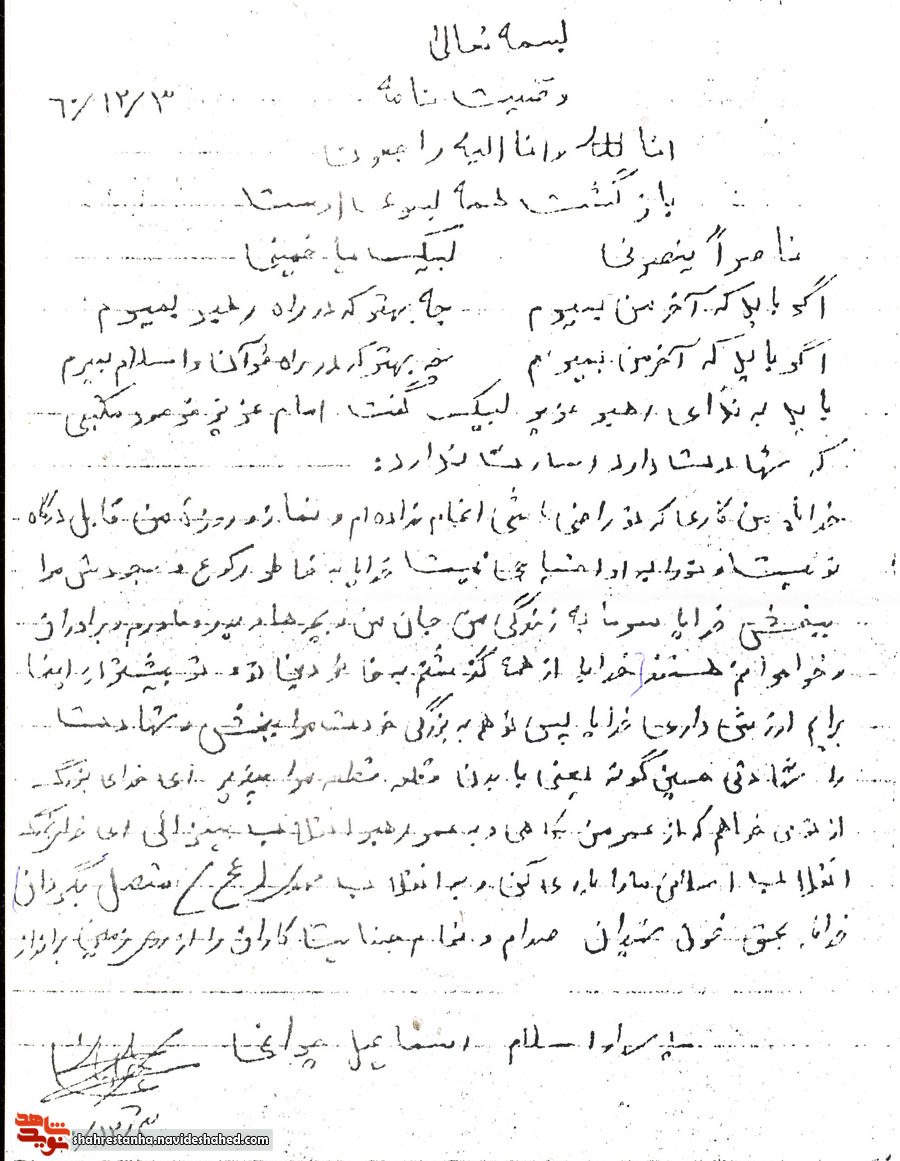 بسمه تعالی
وصیت نامه
۶۰/۱۲/۳
انا لله و انا الیه راجعون
بازگشت همه بسوی اوست
ناصراً ینصرنی لبیک یا خمینی
اگر باید که آخر من بمیرم چه بهتر که در راه رهبر بمیرم
اگر باید که آخر من بمیرم چه بهتر که در راه قرآن و اسلام بمیرم
باید به ندای رهبر عزیز لبیک گفت امام عزیز فرمود مکتبی
که شهادت دارد اسارت ندارد:
خدایا من کاری که تو راضی باشی انجام نداده‌ام و نماز و روزه من قابل درگاه
تو نیست و تو را به او احتیاجی نیست خدایا به خاطر رکوع و سجودش مرا
ببخش خدایا سوما به زندگی من جان من و بچه‌ها و پدر و مادرم و برادران
و خواهرانم هستند خدایا از همه گذشتم به خاطر دین تو و تو بیشتر از اینا
برایم ارزش داری خدایا پس تو هم به بزرگی خودت مرا ببخش و شهادت
را شهادتی حسین گونه یعنی با بدن قطعه قطعه مرا بپذیر ای خدای بزرگ
از تو می خواهم که از عمر من بکاهی و به عمر رهبر انقلاب بیفزائی ای خدای بزرگ
انقلاب اسلامی ما را یاری کن و به انقلاب مهدی (عج) متصل بگردان
خدایا بحق خون شهیدان صدام و تمام جنایتکاران را از روی زمین برانداز
پاسدار اسلام اسماعیل چراغی
نوید شاهد
shahrestanha.navideshahed.com